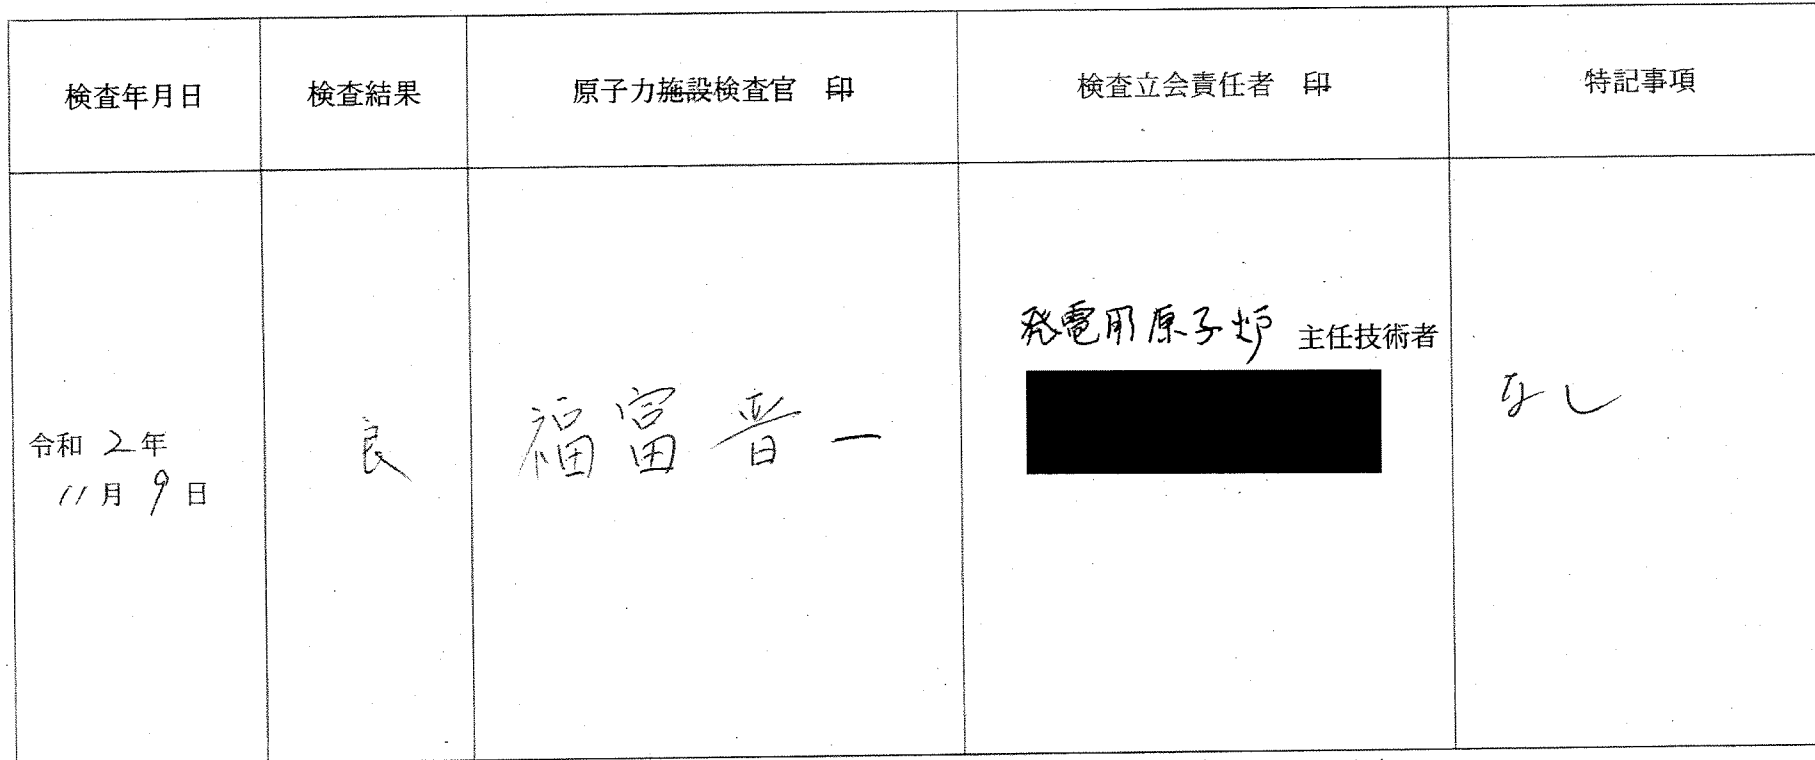 検査年月日
検査結果
原子力施設検査官 印
検査立会責任者 印
特記事項
令和 2 年
11 月 9 日
良
福富晋一
発電用原子炉 主任技術者
なし